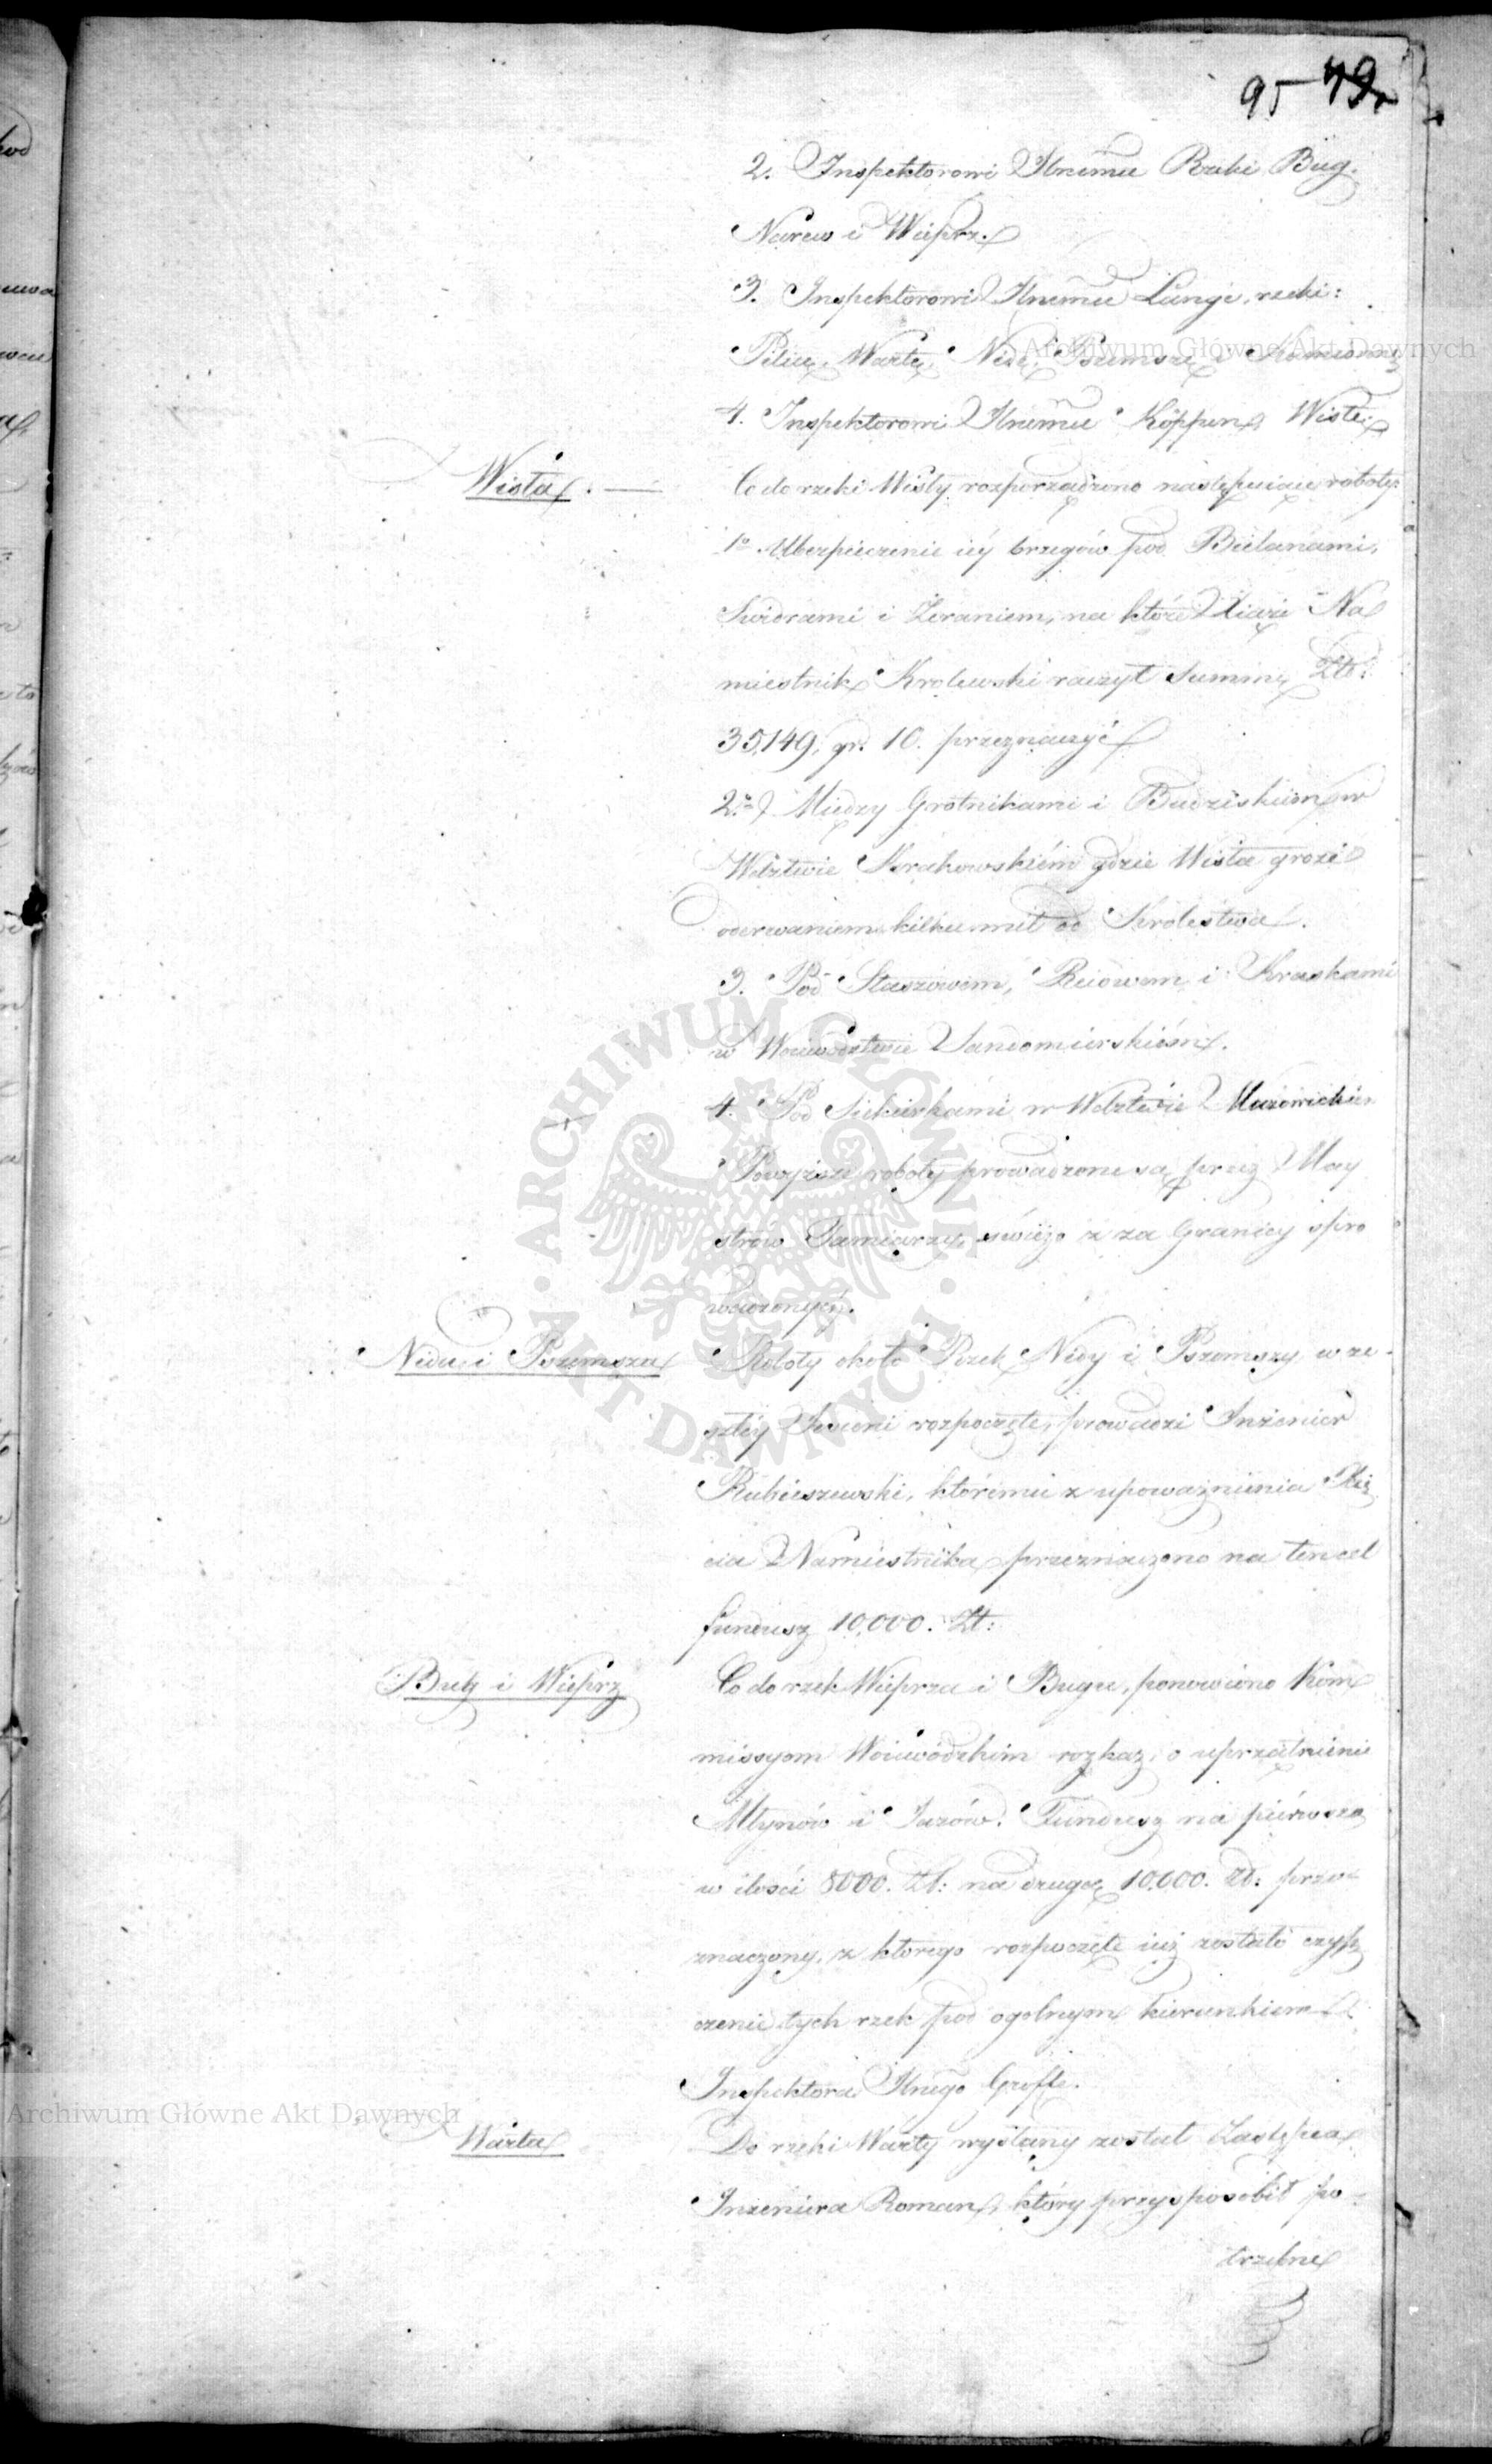 95 79
2. Inspektorowi Jlnemu Rzeki Bug.
Narew i Wieprz.
3. Inspektorowi Jlnemu Lange, rzeki:
Pilicę, Wartę, Nidę, Pszemszę i Kamionnę
4. Inspektorowi Jlnemu Köppen, Wisłę.
Wisła. —
Co do rzeki Wisły rozporządzono następuiące roboty:
1o. Ubezpieczenie iéy brzegów pod Bielanami,
Świdrami i Żeraniem, na które Xiąże Na
miestnik Krolewski raczył Summę Złł:
35,149, gr. 10. przeznaczyć
2o. Między Grotnikami i Budziskiem w
Wdztwie Krakowskiém gdzie Wisła grozi
oderwaniem kilku mil od Krolestwa.
3. Pod Staszowem, Reiowem i Kraskami
w Woiewodztwie Sandomierskiém.
4. Pod Siekierkami w Wdztwie Mazowieckiem
Powyższe roboty prowadzone są przez May
strów Tamiarzy, świéżo z za Granicy spro
wadzonych.
Nida i Pszemsza
Roboty około Rzek Nidy i Pszemszy w ze-
szłéy Jesieni rozpoczęte, prowadzi Inżenier
Rubieszewski, któremu z upoważnienia Xię
cia Namiestnika przeznaczono na ten cel
fundusz 10,000. Zł:
Bug i Wieprz
Co do rzek Wieprza i Bugu, ponowiono Kom
missyom Woiewódzkim rozkaz, o uprzątnienie
Młynów i Jazów. Fundusz na pierwszą
w ilości 8000. Zł: na drugą 10,000. Zł: prze-
znaczony, z ktorego rozpoczęte iuż zostało czysz
czenie tych rzek pod ogolnym kierunkiem
Inspektora Jlnego Groffe.
Warta
Do rzeki Warty wysłany został Zastępca
Inżeniera Roman, który przysposobił po-
trzebne
Archiwum Główne Akt Dawnych
Archiwum Główne Akt Dawnych
ARCHIWUM GŁÓWNE AKT DAWNYCH